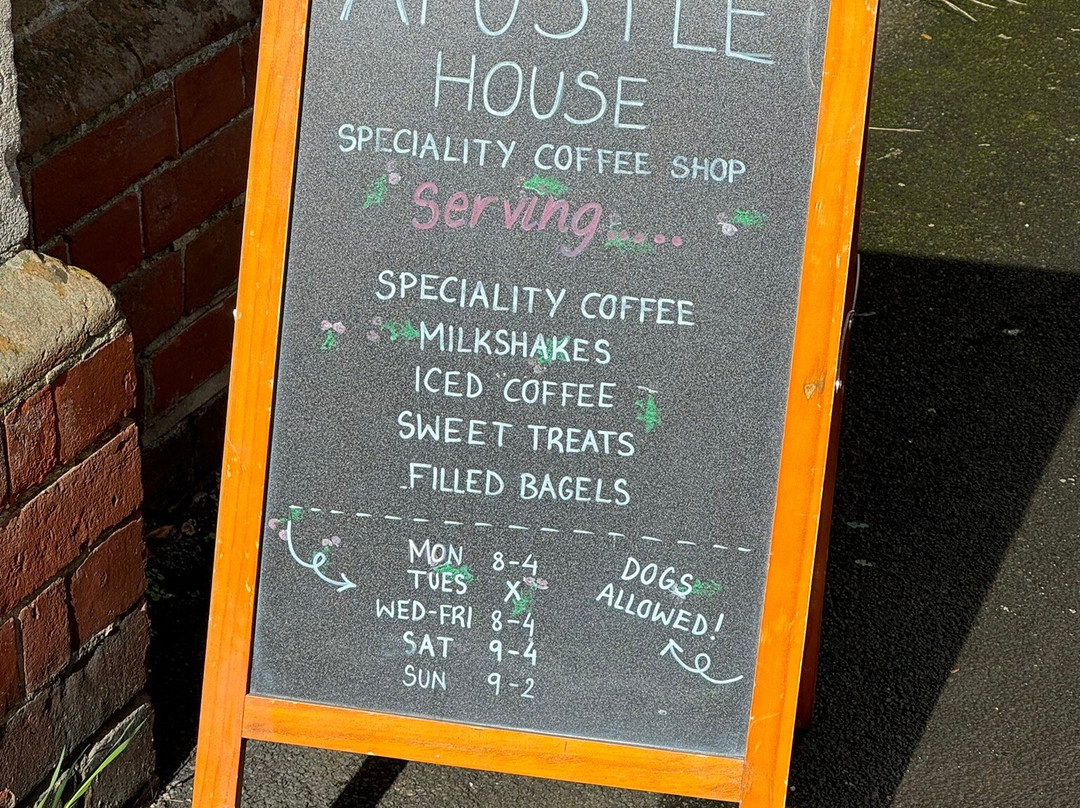 APOSTLE
HOUSE
SPECIALITY COFFEE SHOP
Serving.....
SPECIALITY COFFEE
MILKSHAKES
ICED COFFEE
SWEET TREATS
FILLED BAGELS
MON 8-4
TUES X
WED-FRI 8-4
SAT 9-4
SUN 9-2
DOGS
ALLOWED!